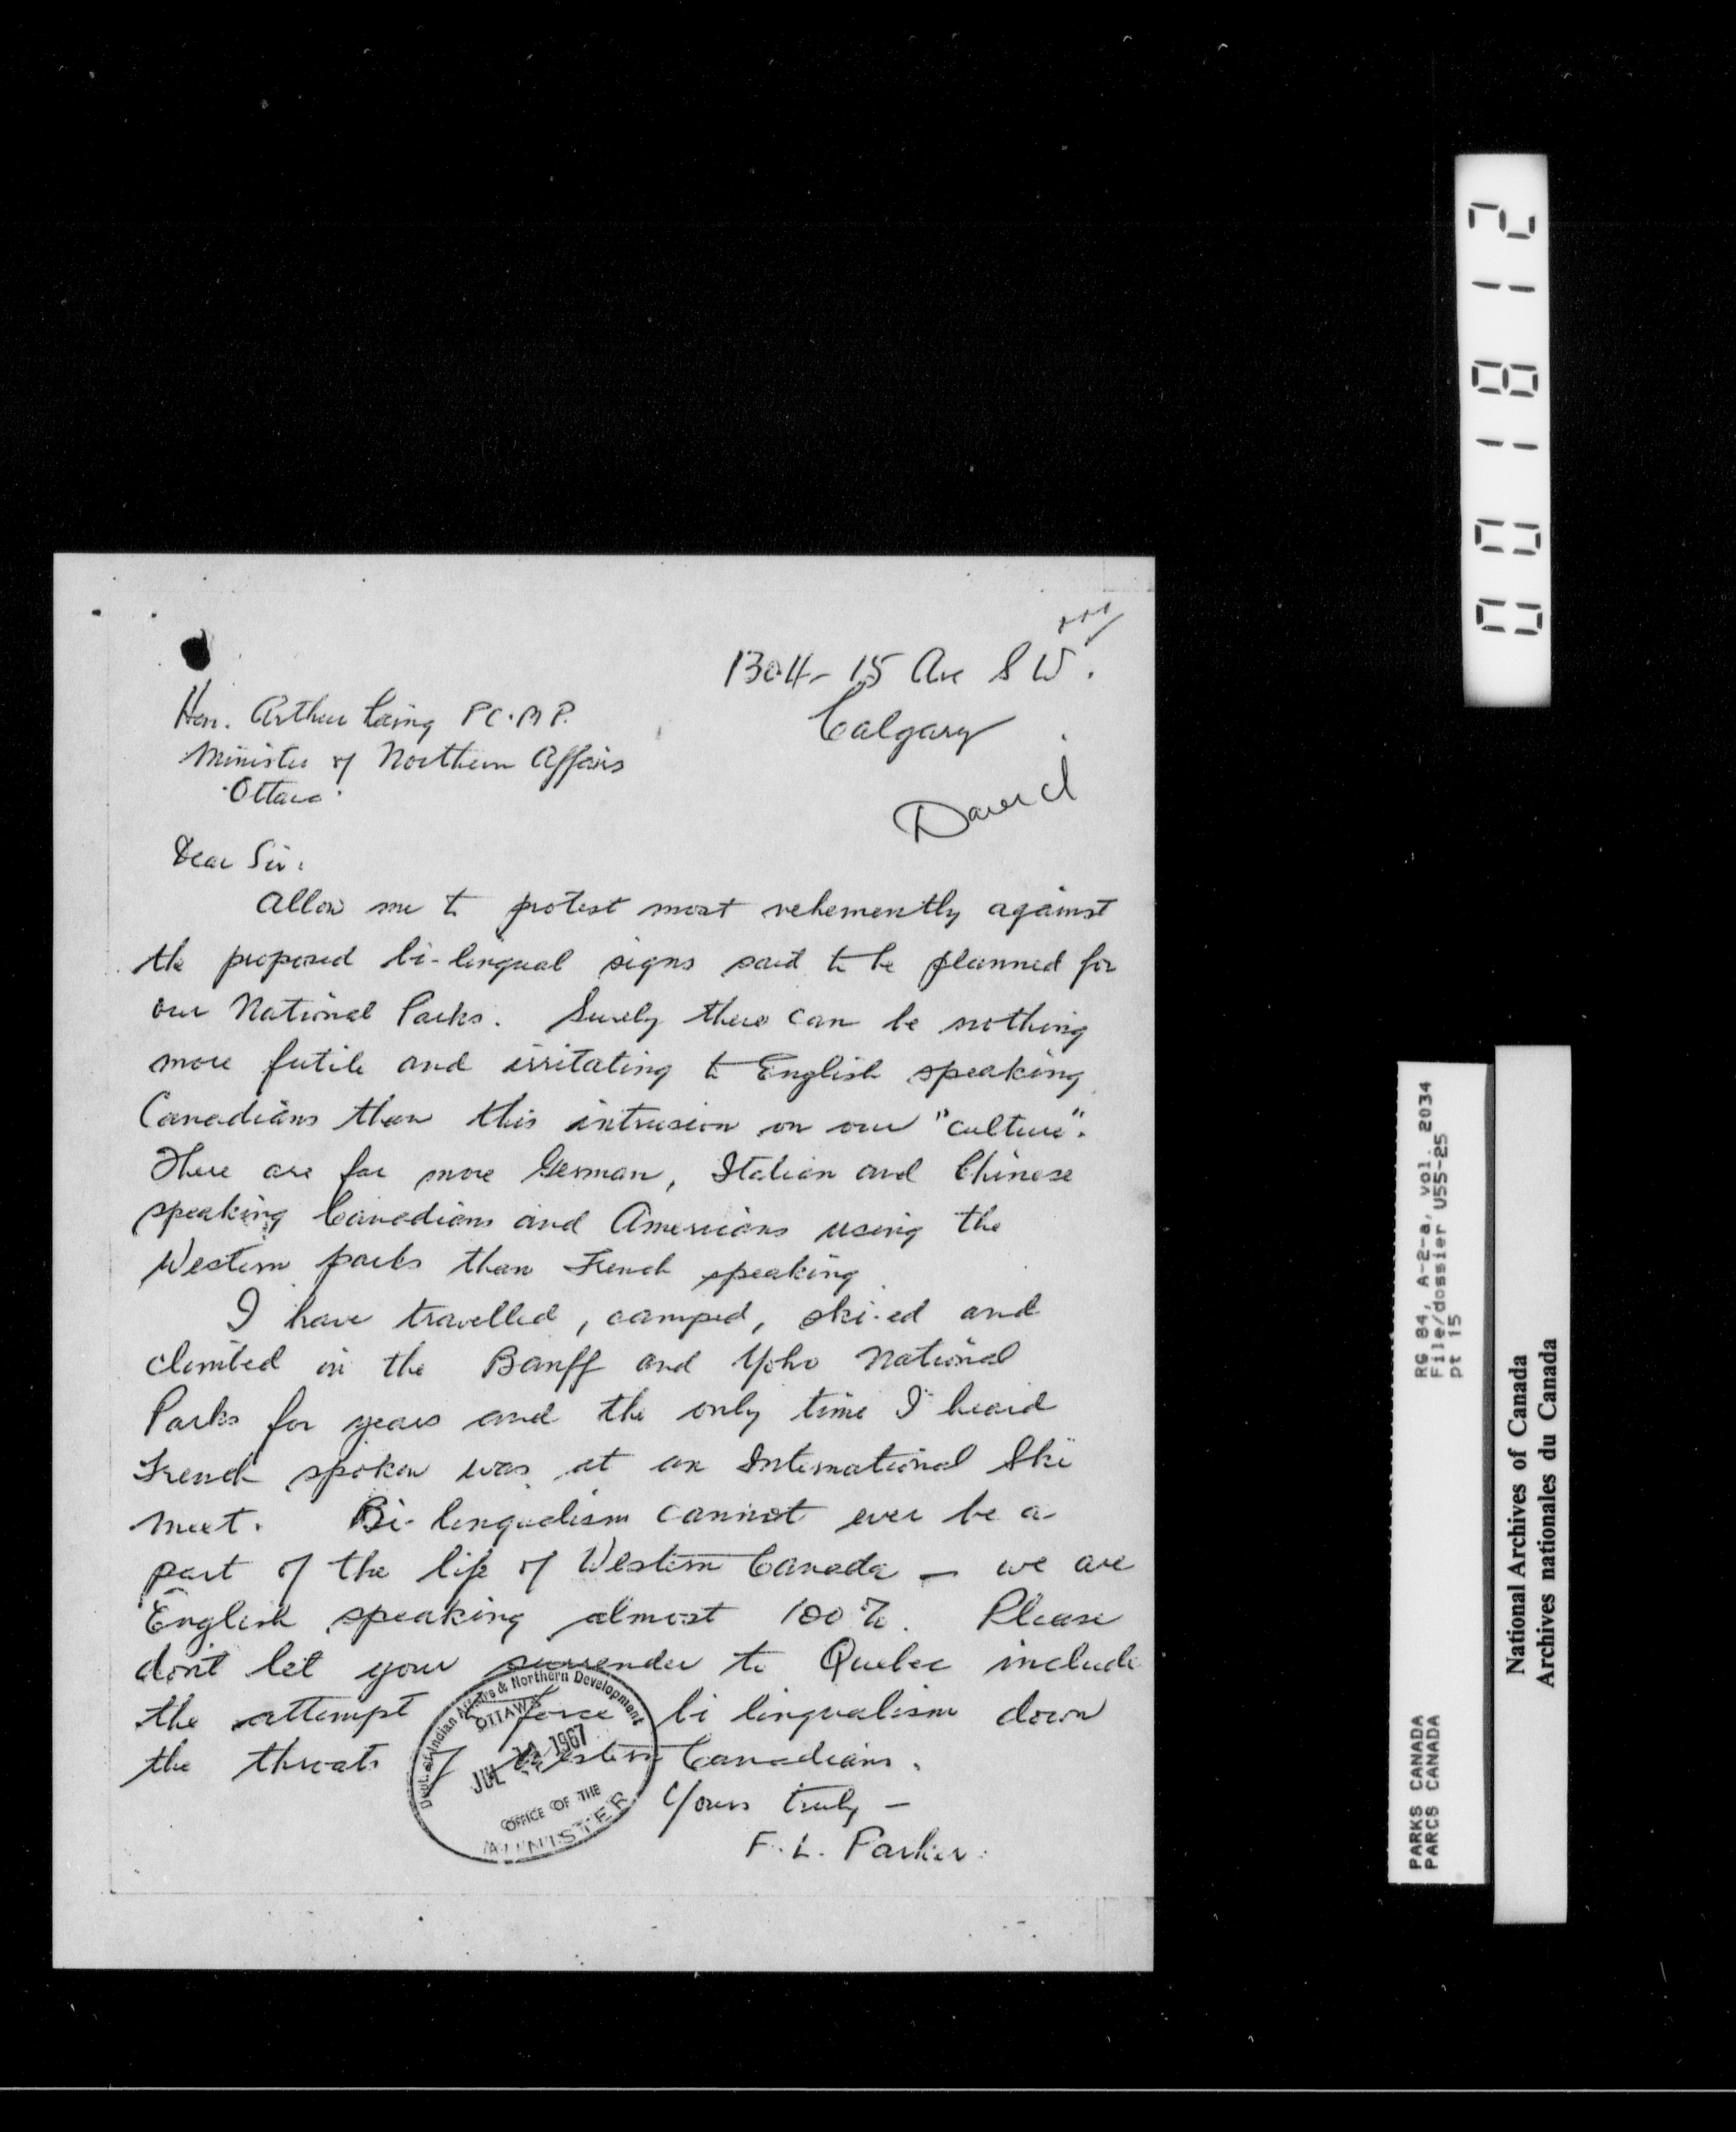 1304 - 15 Ave S W.
Calgary
Hon. Arthur Laing P C. M P.
Minister of Northern Affairs
Ottawa
David
Dear Sir:
Allow me to protest most vehemently against
the proposed bi-lingual signs said to be planned for
our National Parks. Surely there can be nothing
more futile and irritating to English speaking
Canadians than this intrusion on our "culture".
There are far more German, Italian and Chinese
speaking Canadians and Americans using the
Western parks than French speaking
I have travelled, camped, ski-ed and
climbed in the Banff and Yoho National
Parks for years and the only time I heard
French spoken was at an International Ski
meet. Bi-lingualism cannot ever be a
part of the life of Western Canada — we are
English speaking almost 100%. Please
don't let your surrender to Quebec include
the attempt to force bi lingualism down
the throats of Western Canadians.
Yours truly —
F. L. Parker.
Dept. of Indian Affairs & Northern Development
OTTAWA
JUL 14 1967
OFFICE OF THE
MINISTER
001812
RG 84, A-2-a, vol. 2034
File/dossier U55-25
pt 15
PARKS CANADA
PARCS CANADA
National Archives of Canada
Archives nationales du Canada